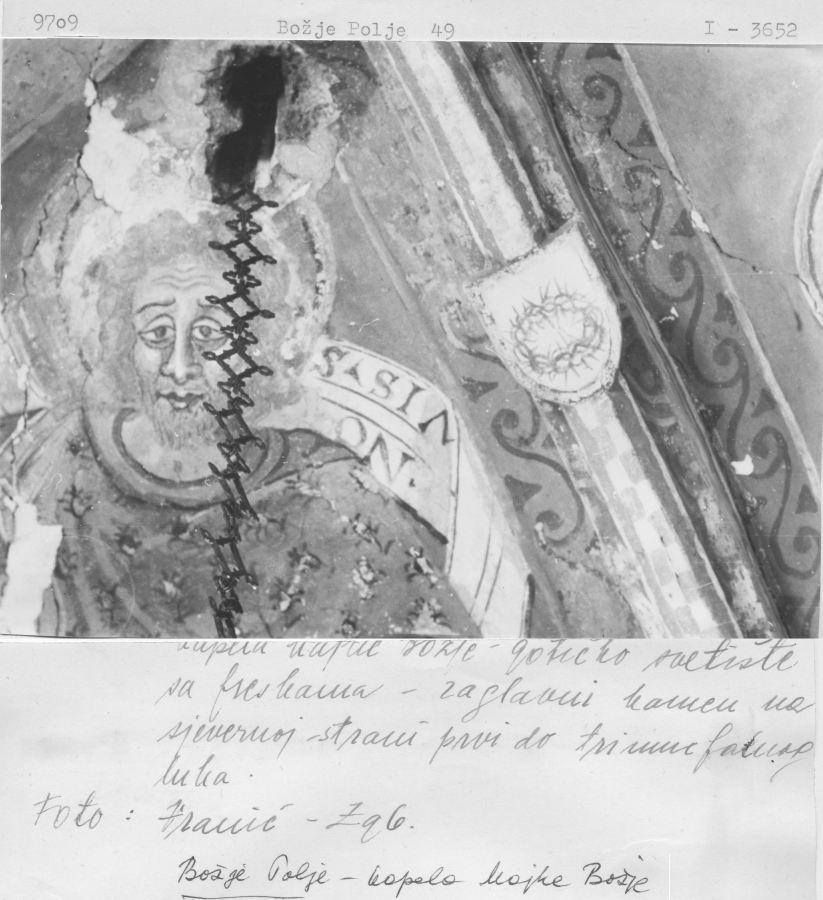 9709 Božje Polje 49 I - 3652
S·A·SIM
ON·
kapela Majke Božje - gotičko svetište
sa freskama - zaglavni kamen na
sjevernoj strani prvi do trimufalnog
luka.
Foto : - Zgb.
Božje Polje - kapela Majke Božje